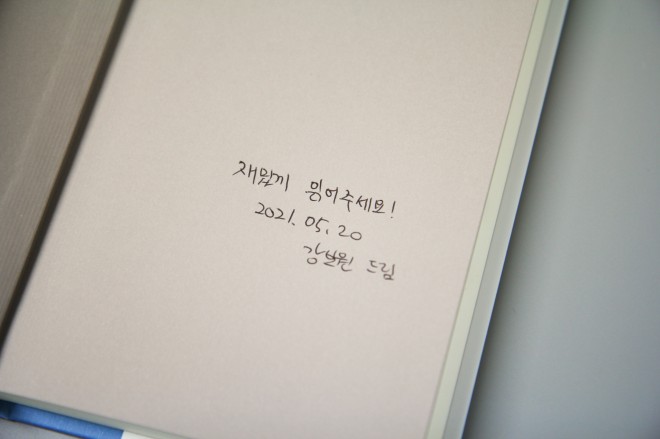 재밌게 읽어주세요!
2021. 05. 20
강보원 드림